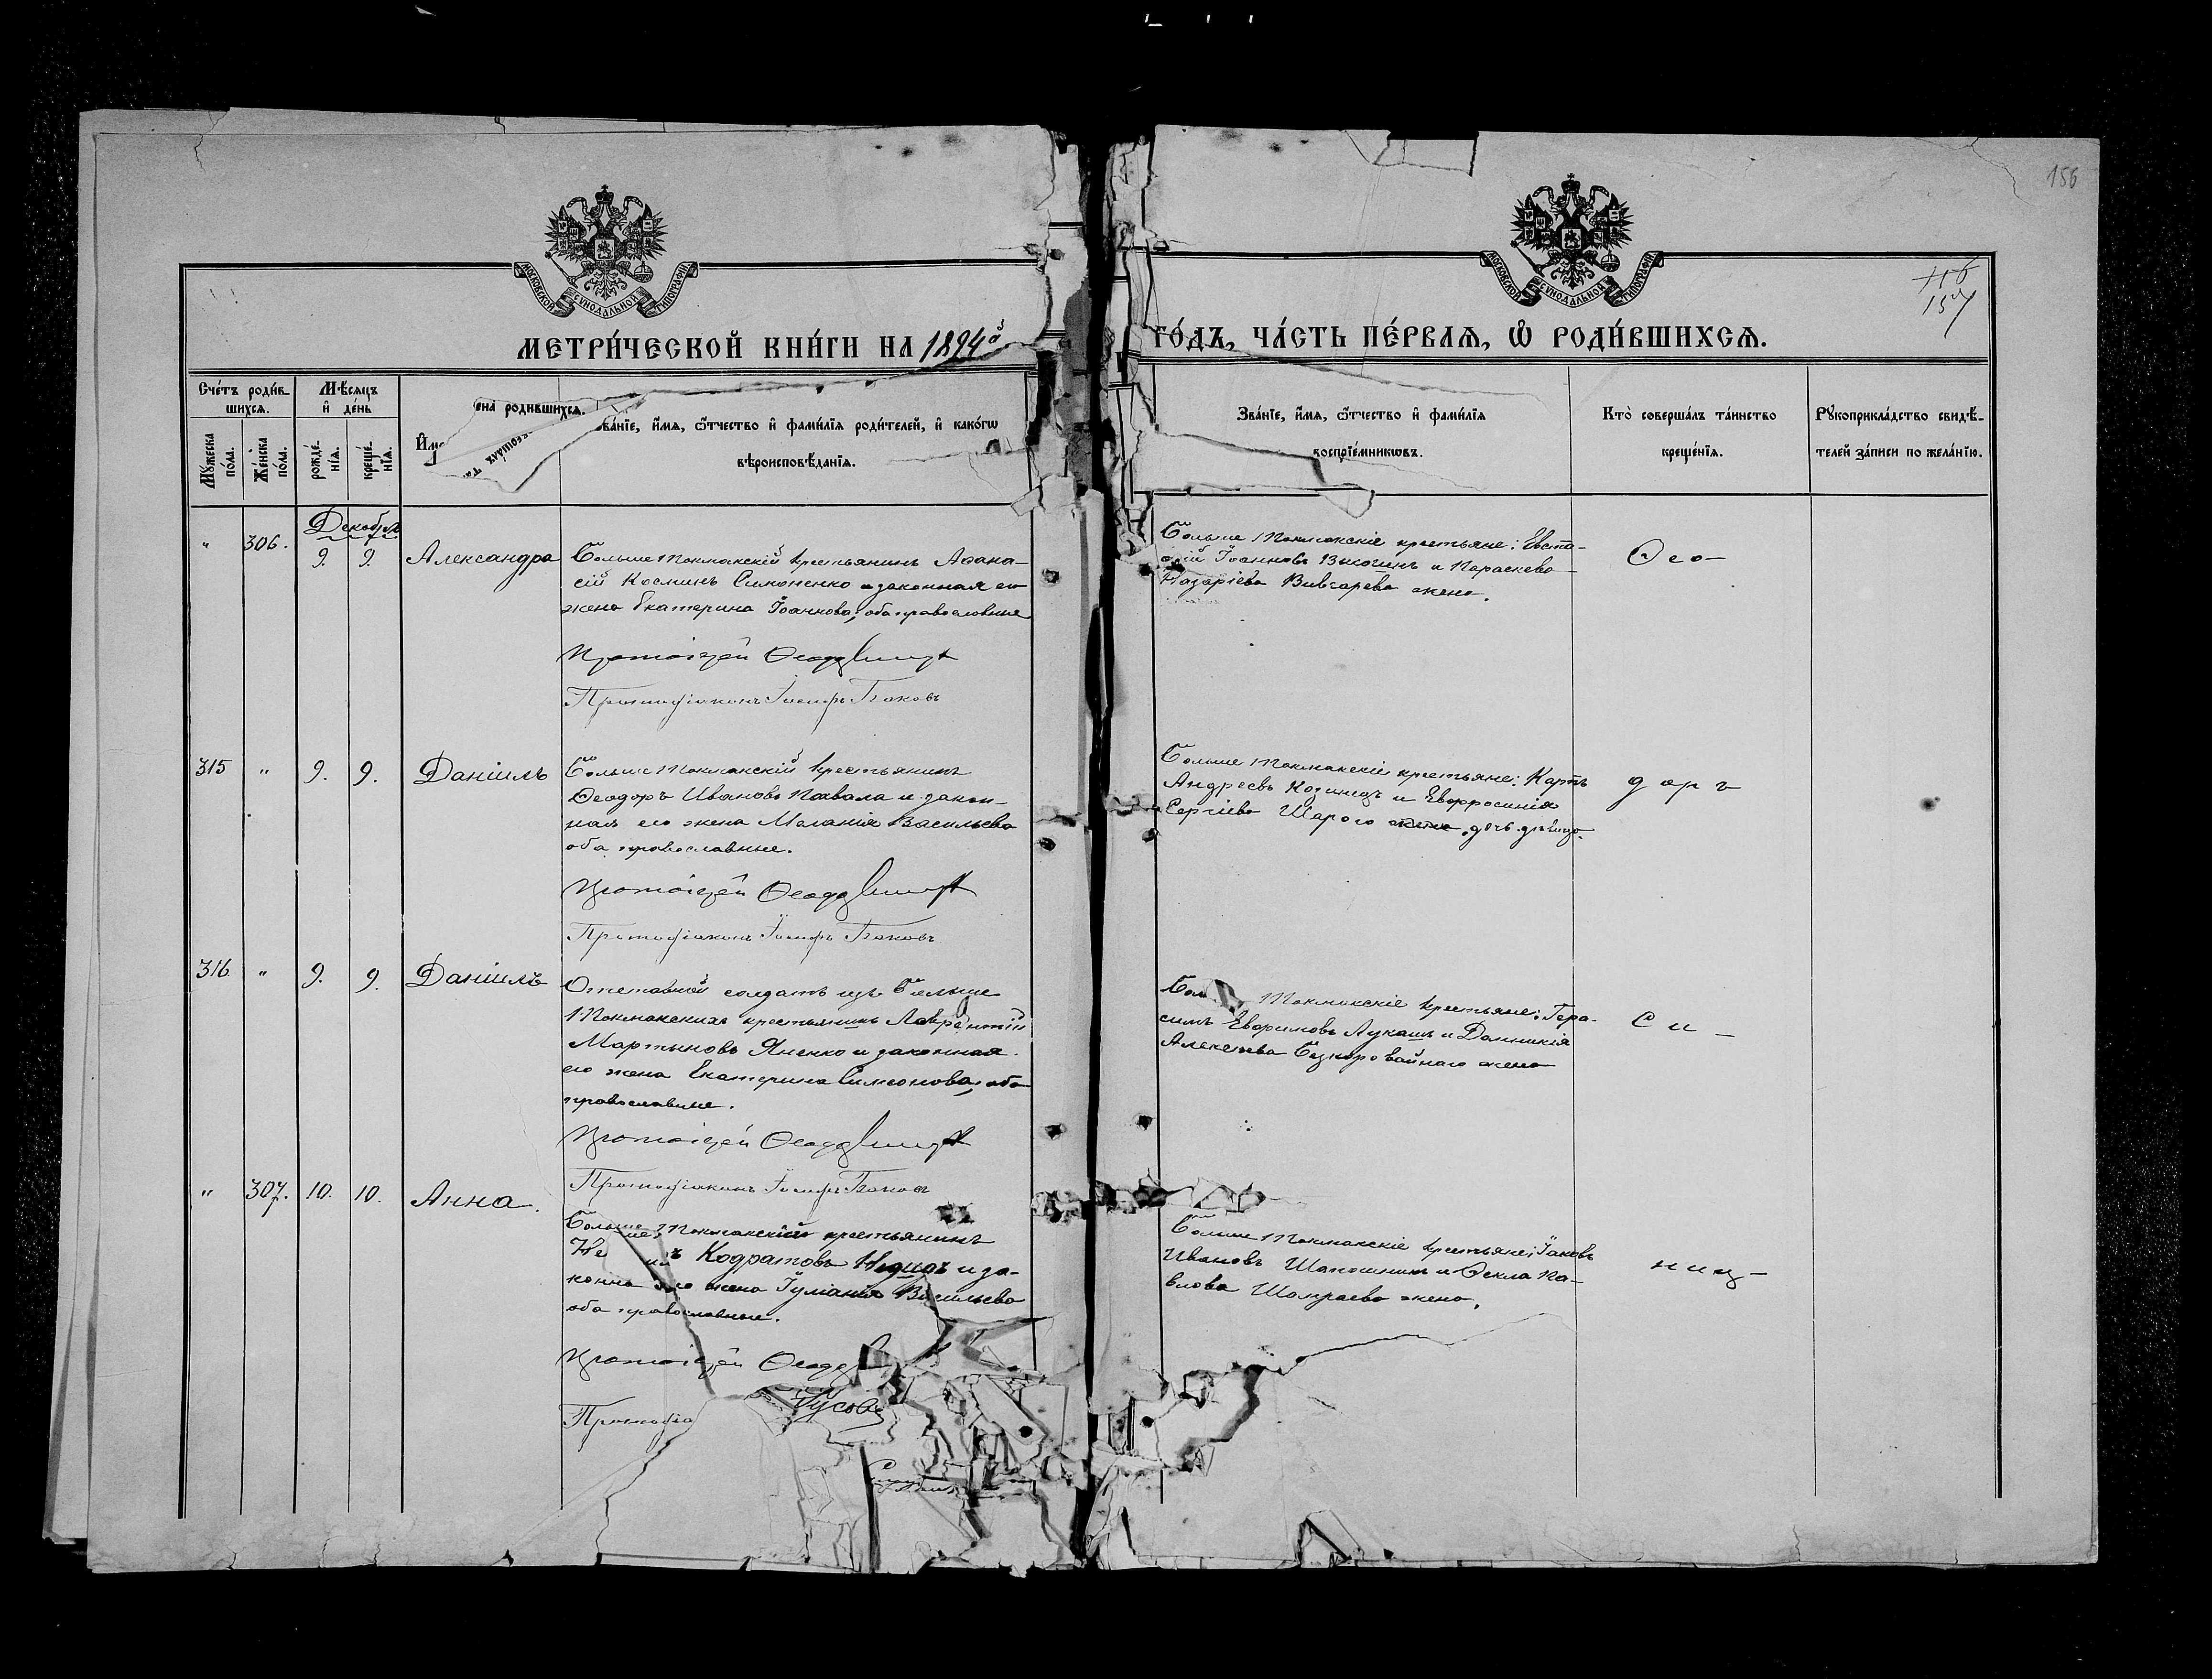 156
МОСКОВСКОЙ СѴНОДАЛЬНОЙ ТИПОГРАФІИ
МОСКОВСКОЙ СѴНОДАЛЬНОЙ ТИПОГРАФІИ
116
157
МЕТРИ́ЧЕСКОЙ КНИ́ГИ НА 1894й
ГО́ДЪ, ЧА́СТЬ ПЕ́РВАѦ, Ѡ҆ РОДИ́ВШИХСѦ.
Сче́тъ роди́в-
шихсѧ.
Мѣ́сѧцъ
и҆ де́нь
Мꙋ́жеска по́ла.
Же́нска по́ла.
рожде́нїѧ.
креще́нїѧ.
И҆ме
ена̀ родившихсѧ.
ва́нїе, и҆́мѧ, ѻ҆́тчество и҆ фами́лїѧ роди́телей, и҆ како́гѡ
вѣроисповѣ́данїѧ.
Зва́нїе, и҆́мѧ, ѻ҆́тчество и҆ фами́лїѧ
воспрїе́мникѡвъ.
Кто̀ соверша́лъ та́инство
креще́нїѧ.
Рꙋкоприкла́дство свидѣ́-
телей за́писи по жела́нїю.
Декабрь
" 306. 9. 9. Александра
Больше Токмакскій крестьянинъ Афана-
сій Косминъ Симоненко и законная его
жена Екатерина Іоаннова, оба православные
Протоіерей Феодоръ
Протодіаконъ Іосифъ Баковъ
Больше Токмакскіе крестьяне: Евста-
фій Іоанновъ и Параскева
Назаріева Вивчарева жена.
Фео-
315 " 9. 9. Даніилъ
Больше Токмакскій крестьянинъ
Феодоръ Ивановъ Похвала и закон-
ная его жена Меланія Васильева
оба православные.
Протоіерей Феодоръ
Протодіаконъ Іосифъ Баковъ
Больше Токмакскіе крестьяне: Карпъ
Андреевъ Козинецъ и Евфросинія
Сергіева Шарого жена дочь девица.
доръ
316 " 9. 9. Даніилъ
Отставной солдатъ изъ Больше
Токмакскихъ крестьянинъ Лаврентій
Мартыновъ Яненко и законная
его жена Екатерина Симеонова, оба
православные.
Протоіерей Феодоръ
Протодіаконъ Іосифъ Баковъ
Бол Токмакскіе крестьяне: Гера-
симъ Евфимовъ Лукашъ и Домникія
Алексѣева Безкоровайного жена
Си-
" 307. 10. 10. Анна.
Больше Токмакскій крестьянинъ
Кодратовъ и за-
конна его жена Іуліанія Васильева
оба православные.
Протоіерей Феодо
Протодіа
Больше Токмакскіе крестьяне: Іаковъ
Ивановъ Шапошникъ и Фекла Па-
влова Шамраева жена.
ниц-